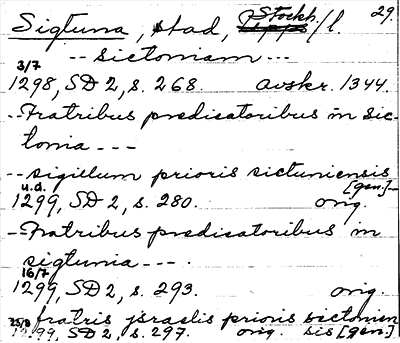 Sigtuna, stad, Stockh. /l. 29.
-- sictoniam ---
3/7
1298, SD 2, s. 268. avskr. 1344.
-- Fratribus predicatoribus in sic-
tonia ---
-- sigillum prioris sictuniensis
u.d. [gen.]--
1299, SD 2, s. 280. orig.
-- Fratribus predicatoribus in
sigtunia ---.
16/7
1299, SD 2, s. 293. orig.
fratris jsraelis prioris sictonien
1299, SD 2, s. 297. orig. sis [gen.]